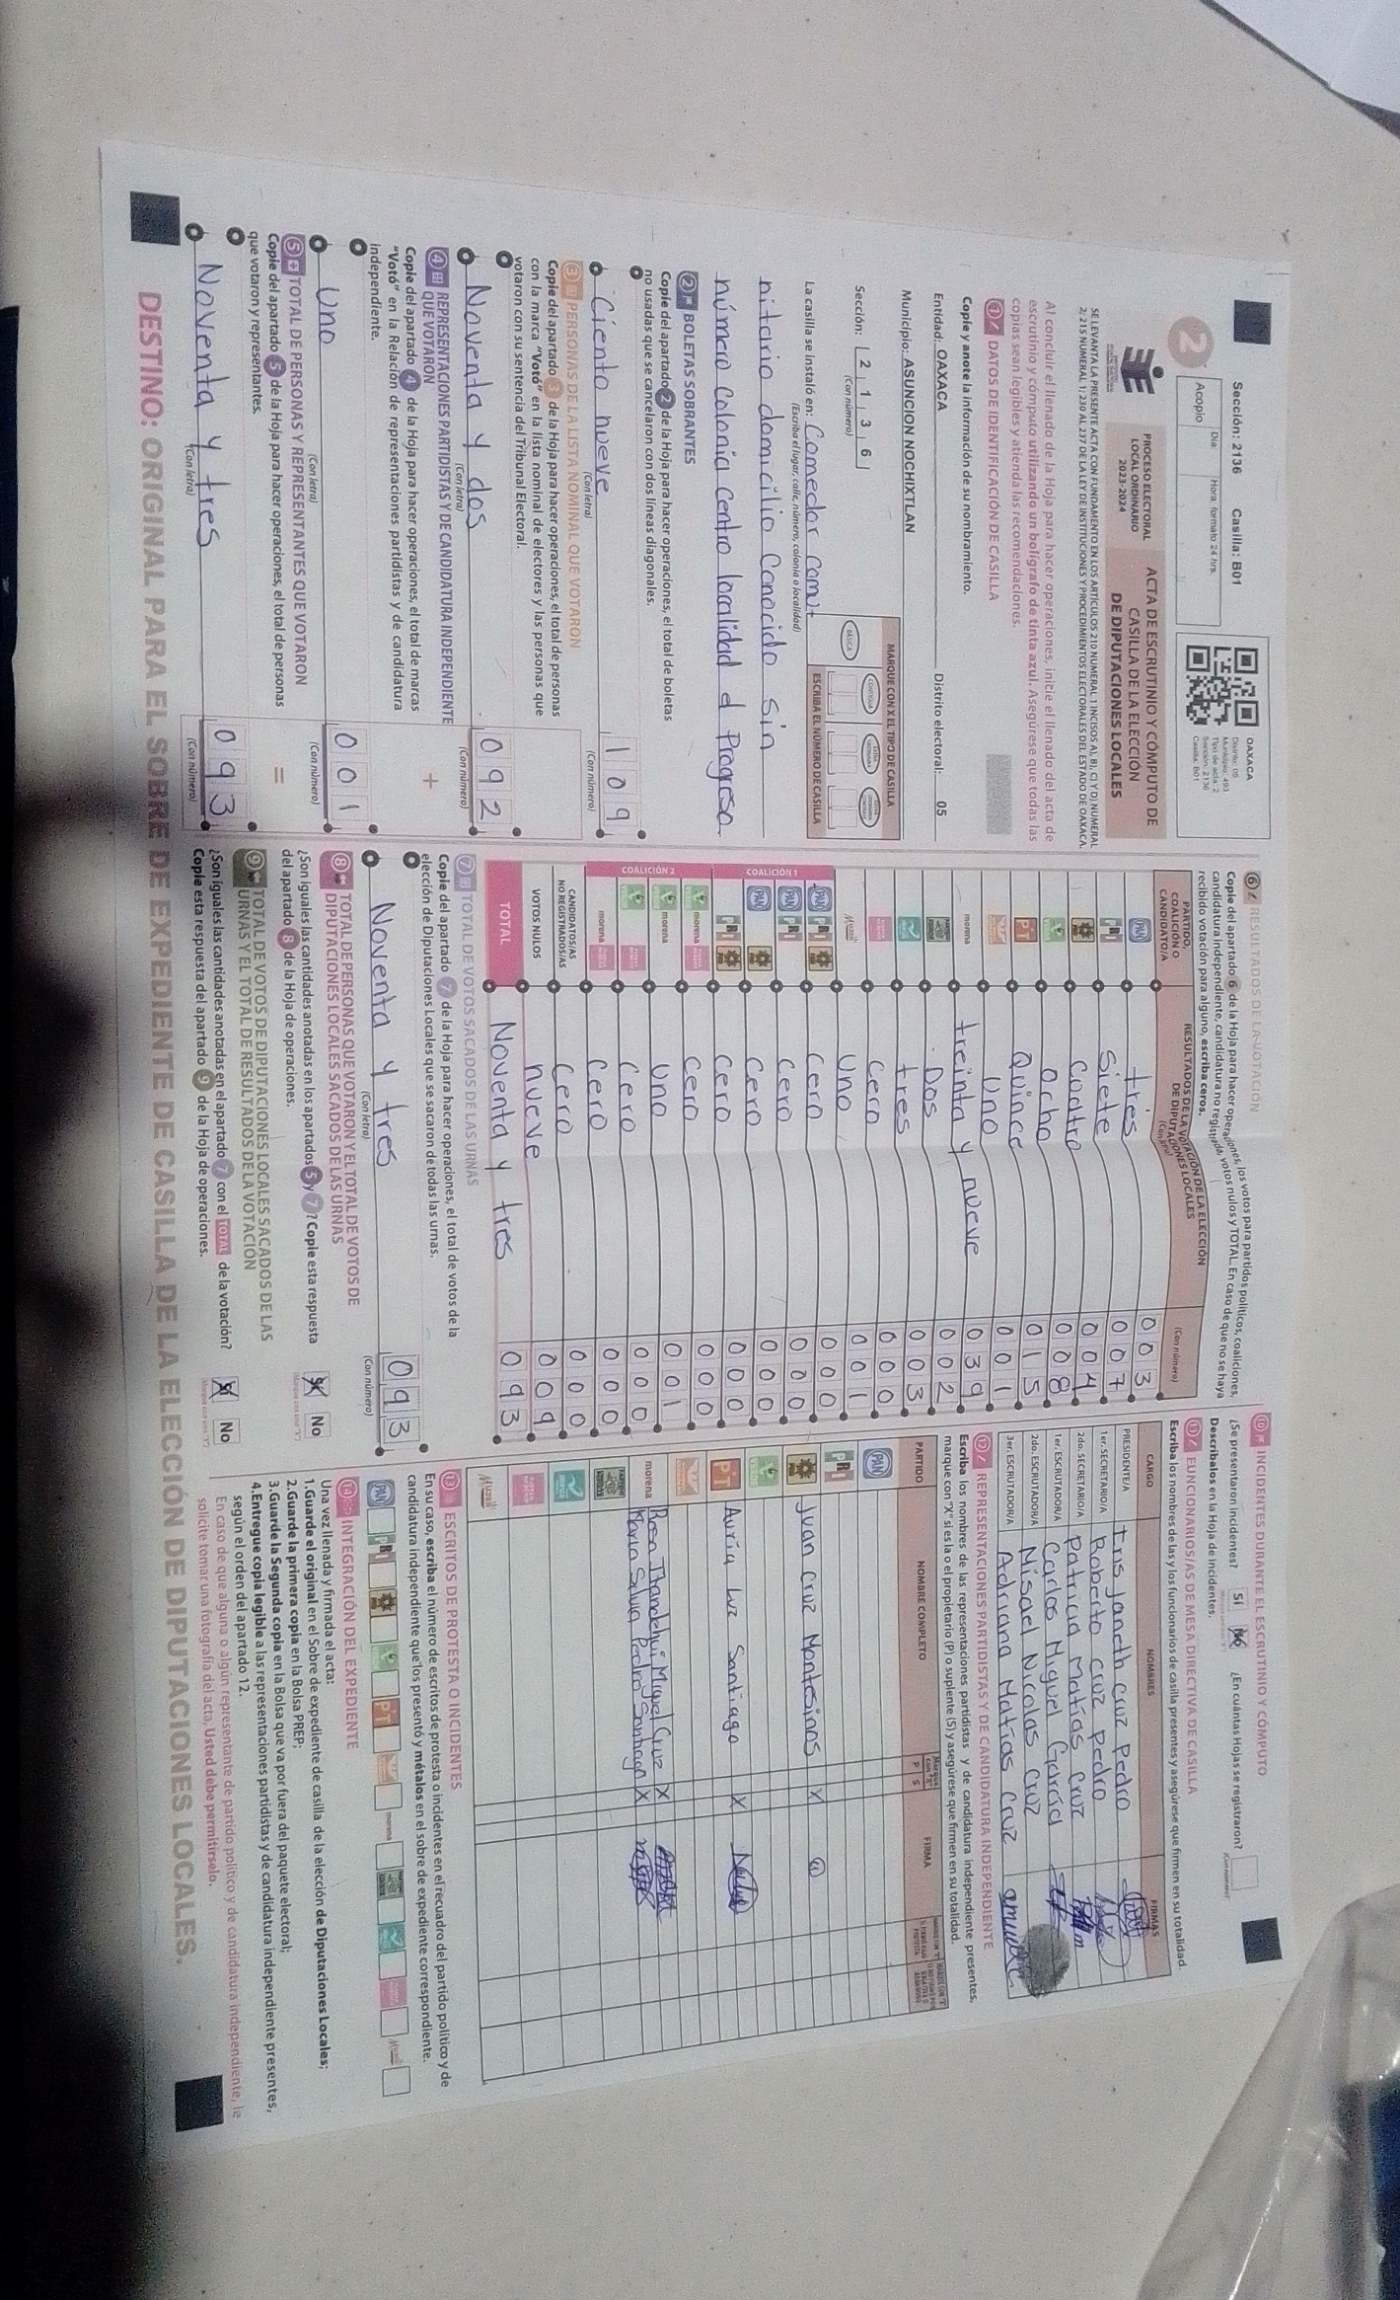 Sección: 2136 Casilla: B01
OAXACA
Distrito: 05
Municipio: 493
Tipo de acta: 2
Sección: 2136
Casilla: B01
2
Acopio
Día
Hora formato 24 hrs.
PROCESO ELECTORAL
LOCAL ORDINARIO
2023-2024
ACTA DE ESCRUTINIO Y CÓMPUTO DE
CASILLA DE LA ELECCIÓN
DE DIPUTACIONES LOCALES
SE LEVANTA LA PRESENTE ACTA CON FUNDAMENTO EN LOS ARTÍCULOS 210 NUMERAL 1 INCISOS A), B), C) Y D) NUMERAL
2; 215 NUMERAL 1; 230 AL 237 DE LA LEY DE INSTITUCIONES Y PROCEDIMIENTOS ELECTORALES DEL ESTADO DE OAXACA.
Al concluir el llenado de la Hoja para hacer operaciones, inicie el llenado del acta de
escrutinio y cómputo utilizando un bolígrafo de tinta azul. Asegúrese que todas las
copias sean legibles y atienda las recomendaciones.
1 DATOS DE IDENTIFICACIÓN DE CASILLA
Copie y anote la información de su nombramiento.
Entidad: OAXACA Distrito electoral: 05
Municipio: ASUNCION NOCHIXTLAN
Sección: 2 1 3 6
(Con número)
MARQUE CON X EL TIPO DE CASILLA
BÁSICA
ESCRIBA EL NÚMERO DE CASILLA
La casilla se instaló en: Comedor Comit
(Escriba el lugar, calle, número, colonia o localidad)
nitario domicilio Conocido sin
número Colonia Centro localidad el Progreso.
2 BOLETAS SOBRANTES
Copie del apartado 2 de la Hoja para hacer operaciones, el total de boletas
no usadas que se cancelaron con dos líneas diagonales.
Ciento nueve 109
(Con letra) (Con número)
3 PERSONAS DE LA LISTA NOMINAL QUE VOTARON
Copie del apartado 3 de la Hoja para hacer operaciones, el total de personas
con la marca "Votó" en la lista nominal de electores y las personas que
votaron con su sentencia del Tribunal Electoral.
Noventa y dos 092
(Con letra) (Con número)
4 REPRESENTACIONES PARTIDISTAS Y DE CANDIDATURA INDEPENDIENTE
QUE VOTARON +
Copie del apartado 4 de la Hoja para hacer operaciones, el total de marcas
"Votó" en la Relación de representaciones partidistas y de candidatura
independiente.
Uno 001
(Con letra) (Con número)
5 TOTAL DE PERSONAS Y REPRESENTANTES QUE VOTARON
Copie del apartado 5 de la Hoja para hacer operaciones, el total de personas
que votaron y representantes. =
Noventa y tres 093
(Con letra) (Con número)
6 RESULTADOS DE LA VOTACIÓN
Copie del apartado 6 de la Hoja para hacer operaciones, los votos para partidos políticos, coaliciones,
candidatura independiente, candidatura no registrada, votos nulos y TOTAL. En caso de que no se haya
recibido votación para alguno, escriba ceros.
PARTIDO,
COALICIÓN O
CANDIDATO/A
RESULTADOS DE LA VOTACIÓN DE LA ELECCIÓN
DE DIPUTACIONES LOCALES
(Con letra) (Con número)
PAN tres 003
PRI Siete 007
Cuatro 004
ocho 008
PT Quince 015
Uno 001
morena treinta y nueve 039
Dos 002
tres 003
Cero 000
Uno 001
COALICIÓN 1
PAN PRI Cero 000
PAN PRI Cero 000
PAN Cero 000
PRI Cero 000
COALICIÓN 2
morena Cero 000
morena Uno 001
Cero 000
morena Cero 000
CANDIDATOS/AS
NO REGISTRADOS/AS Cero 000
VOTOS NULOS nueve 009
TOTAL Noventa y tres 093
7 TOTAL DE VOTOS SACADOS DE LAS URNAS
Copie del apartado 7 de la Hoja para hacer operaciones, el total de votos de la
elección de Diputaciones Locales que se sacaron de todas las urnas.
Noventa y tres 093
(Con letra) (Con número)
8 TOTAL DE PERSONAS QUE VOTARON Y EL TOTAL DE VOTOS DE
DIPUTACIONES LOCALES SACADOS DE LAS URNAS
¿Son iguales las cantidades anotadas en los apartados 5 y 7? Copie esta respuesta
del apartado 8 de la Hoja de operaciones.
No
9 TOTAL DE VOTOS DE DIPUTACIONES LOCALES SACADOS DE LAS
URNAS Y EL TOTAL DE RESULTADOS DE LA VOTACIÓN
¿Son iguales las cantidades anotadas en el apartado 7 con el TOTAL de la votación?
Copie esta respuesta del apartado 9 de la Hoja de operaciones.
No
10 INCIDENTES DURANTE EL ESCRUTINIO Y CÓMPUTO
¿Se presentaron incidentes? SÍ ¿En cuántas Hojas se registraron?
Descríbalos en la Hoja de incidentes.
11 FUNCIONARIOS/AS DE MESA DIRECTIVA DE CASILLA
Escriba los nombres de las y los funcionarios de casilla presentes y asegúrese que firmen en su totalidad.
CARGO NOMBRES FIRMAS
PRESIDENTE/A Ines Janeth cruz Pedro
1er. SECRETARIO/A Roberto cruz pedro
2do. SECRETARIO/A Patricia Matías cruz
1er. ESCRUTADOR/A Carlos Miguel García
2do. ESCRUTADOR/A Misael Nicolas Cruz
3er. ESCRUTADOR/A Adriana Matias cruz
12 REPRESENTACIONES PARTIDISTAS Y DE CANDIDATURA INDEPENDIENTE
Escriba los nombres de las representaciones partidistas y de candidatura independiente presentes,
marque con "X" si es la o el propietario (P) o suplente (S) y asegúrese que firmen en su totalidad.
PARTIDO NOMBRE COMPLETO P S FIRMA
PAN
PRI
Juan Cruz Montesinos X
PT Auria Luz Santiago X
morena Rosa Miguel Cruz X
Pedro Santiago X
13 ESCRITOS DE PROTESTA O INCIDENTES
En su caso, escriba el número de escritos de protesta o incidentes en el recuadro del partido político y de
candidatura independiente que los presentó y métalos en el sobre de expediente correspondiente.
PAN PRI PT morena
14 INTEGRACIÓN DEL EXPEDIENTE
Una vez llenada y firmada el acta:
1.Guarde el original en el Sobre de expediente de casilla de la elección de Diputaciones Locales;
2.Guarde la primera copia en la Bolsa PREP;
3.Guarde la Segunda copia en la Bolsa que va por fuera del paquete electoral;
4.Entregue copia legible a las representaciones partidistas y de candidatura independiente presentes,
según el orden del apartado 12.
En caso de que alguna o algún representante de partido político y de candidatura independiente, le
solicite tomar una fotografía del acta, Usted debe permitírselo.
DESTINO: ORIGINAL PARA EL SOBRE DE EXPEDIENTE DE CASILLA DE LA ELECCIÓN DE DIPUTACIONES LOCALES.